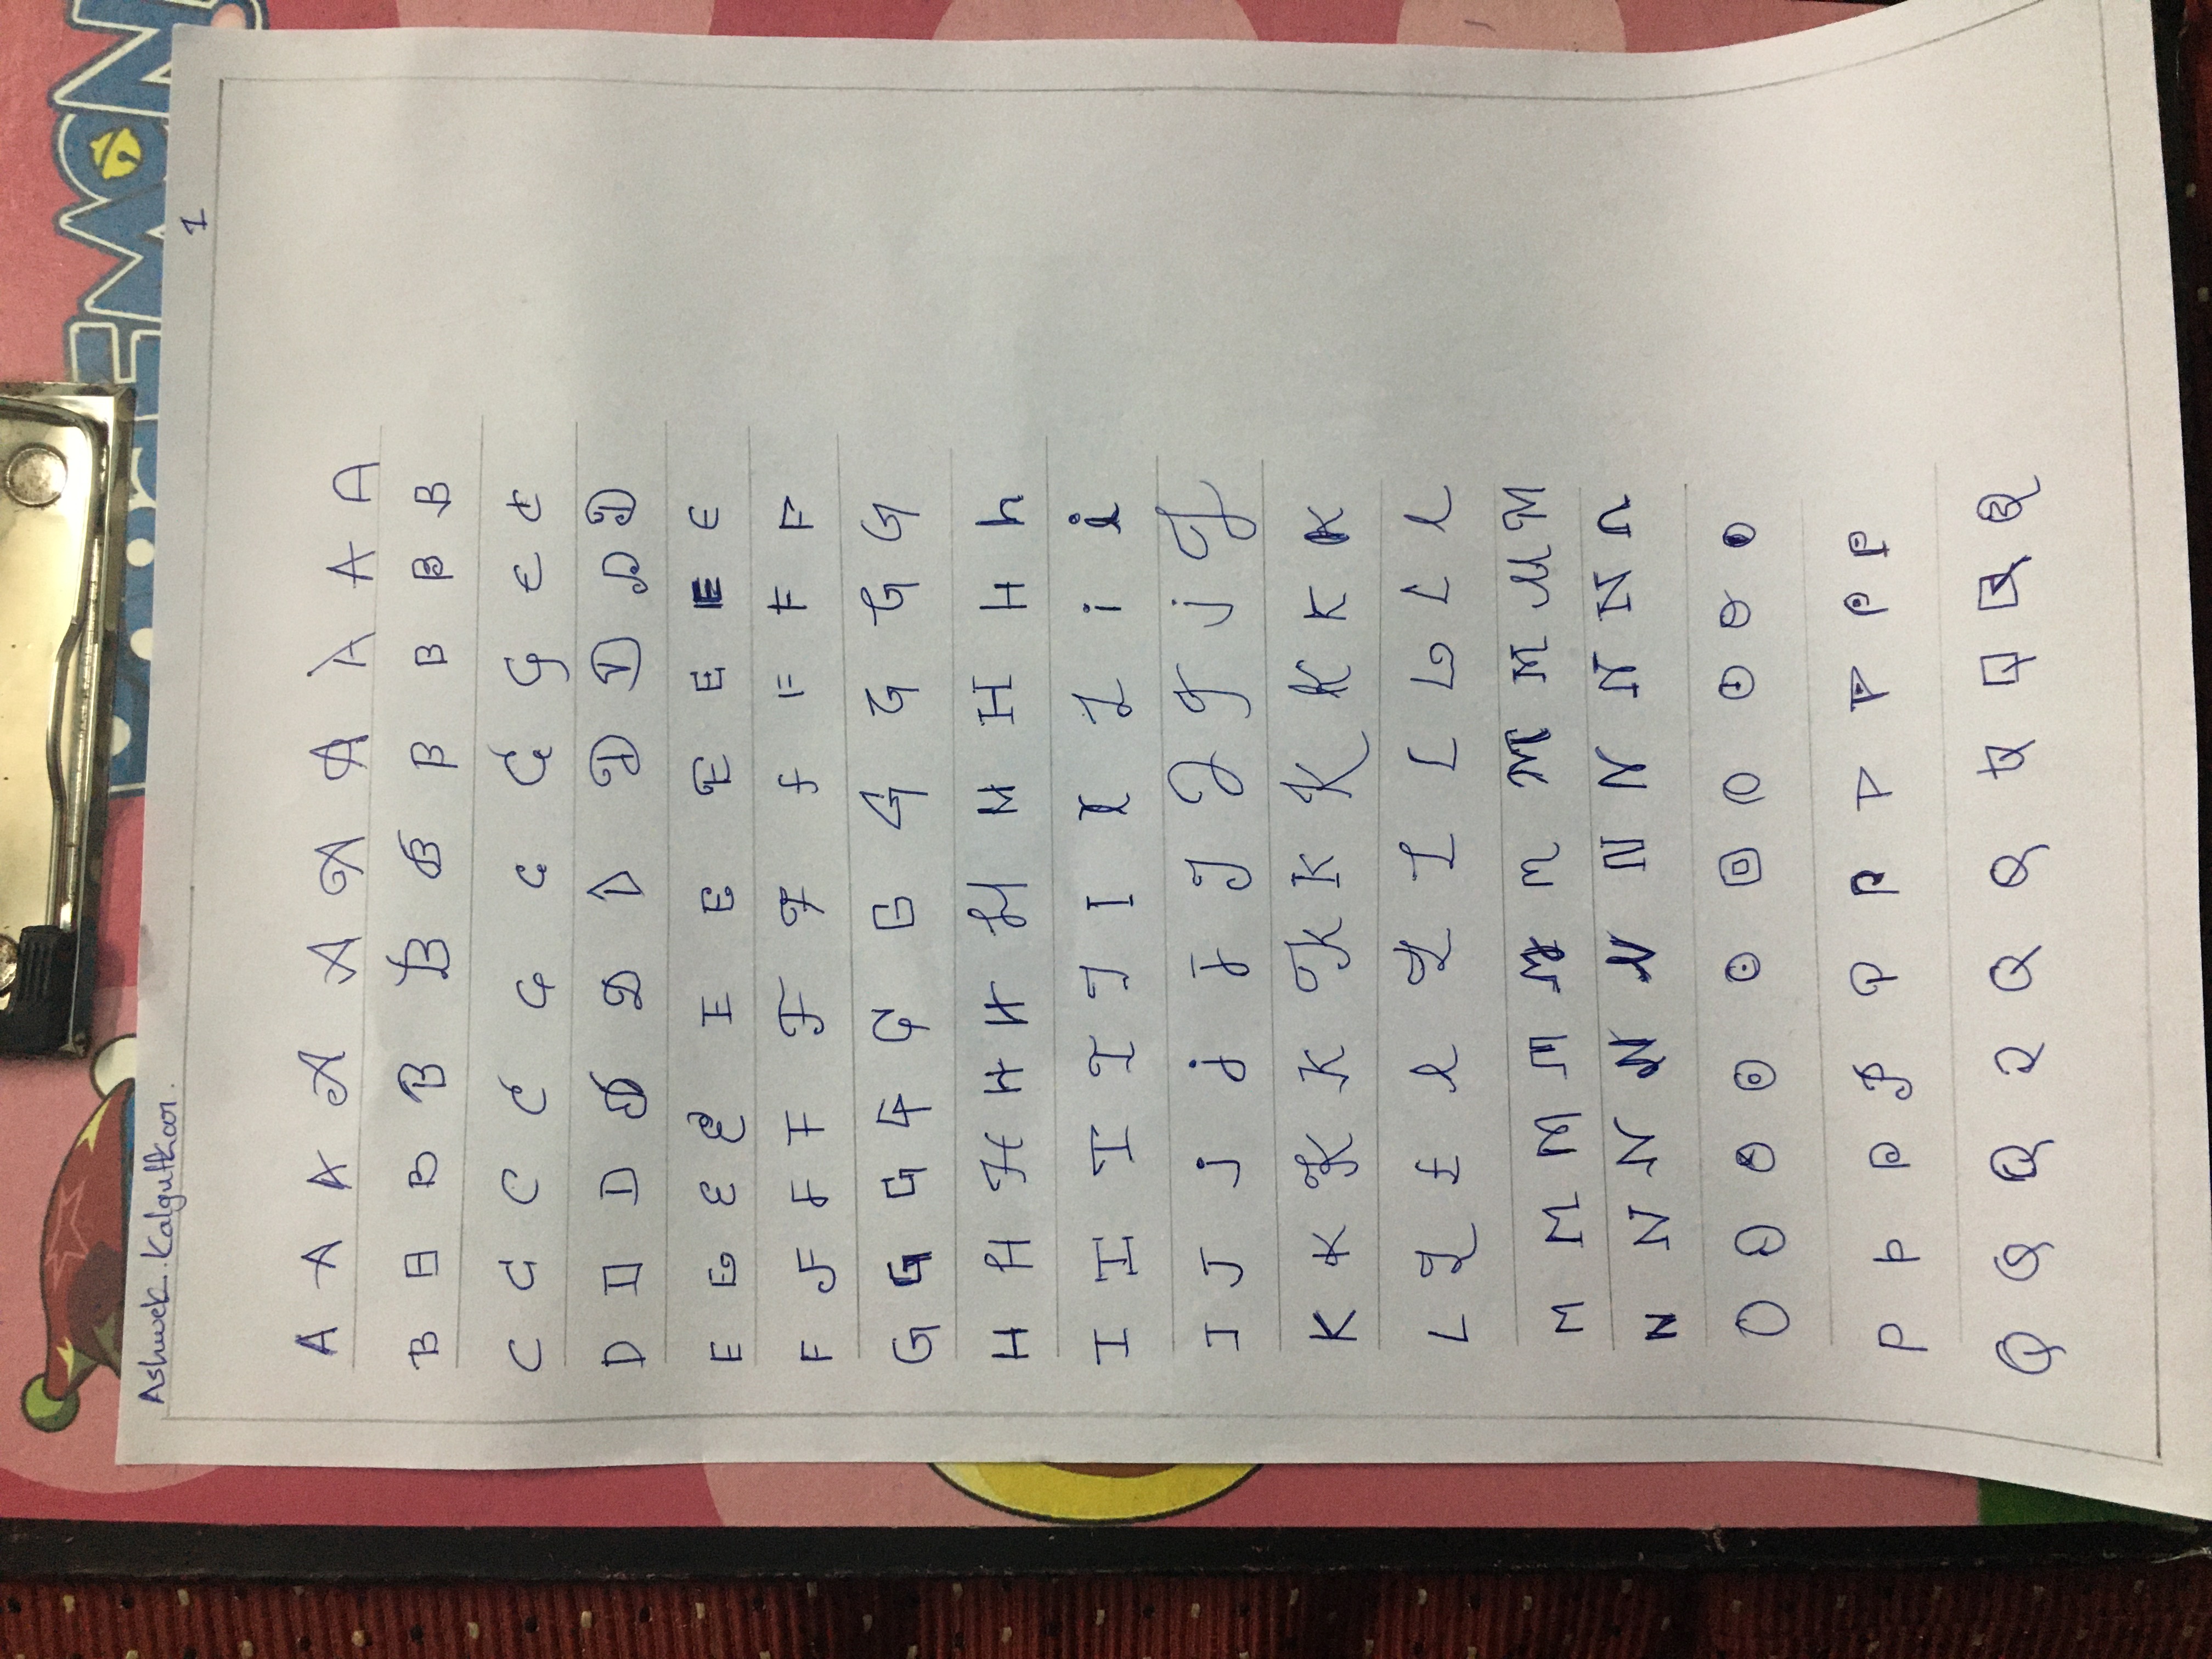 DORAEMON
Ashwek Kalgutkar.
1
A A A A A A A A A A
B B B B B B B B B B
C C C C C C C C C C
D D D D D D D D D D
E E E E E E E E E E
F F F F F F f F F F
G G G G G G G G G G
H H H H H H H H H h
I I I I I I I I i i
J J j j J J J J j J
K K K K K K K K K K
L L L l L L L L L l
M M M M M M M M M M
N N N N N N N N N n
O O O O O O O O O O
P P P P P P P P P P
Q Q Q Q Q Q Q Q Q Q